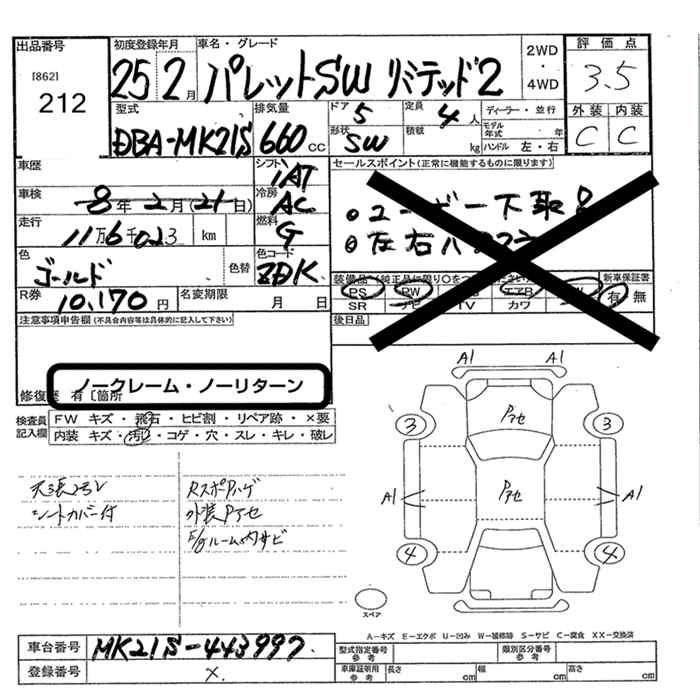 出品番号
[862]
212
初度登録年月
25 2月
車名・グレード
パレットSW リミテッド2
2WD
・
4WD
評価点
3.5
型式
DBA-MK21S
排気量
660 CC
ドア
5
形状
SW
定員
4人
積載
kg
ディーラー・並行
モデル年式 年
ハンドル 左・右
外装 内装
C C
車歴
シフト
IAT
セールスポイント(正常に機能するものに限ります)
車検
8年2月(21日)
冷房
AC
走行
11万6千023 km
燃料
G
色
ゴールド
色替
色コード
R券
10,170円
名変期限
月 日
PS PW エアB
SR ナビ TV カワ
新車保証書
有 無
注意事項申告欄(不具合内容等は具体的に記入して下さい)
後日品
ノークレーム・ノーリターン
修復歴 有〔箇所
検査員記入欄
FW キズ・飛石・ヒビ割・リペア跡・×要
内装 キズ・汚れ・コゲ・穴・スレ・キレ・破レ
シートカバー付
Rスポハゲ
外装Pアセ
E/gルーム内サビ
A1 A1
Pアセ
3 3
Pアセ
A1 A1
4 4
スペア
A－キズ E－エクボ U－凹み W－補修跡 S－サビ C－腐食 XX－交換済
車台番号
MK21S-443997
登録番号
×
型式指定番号参考
類別区分番号参考
車庫証明用参考
長さ cm
幅 cm
高さ cm